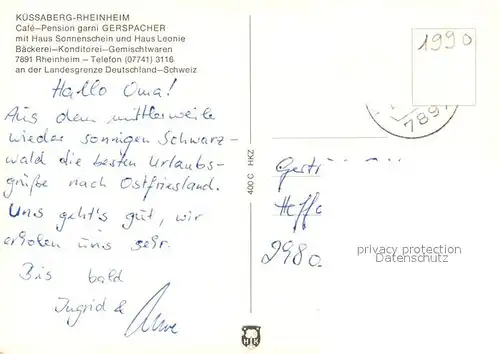 KÜSSABERG-RHEINHEIM
Café–Pension garni GERSPACHER
mit Haus Sonnenschein und Haus Leonie
Bäckerei–Konditorei–Gemischtwaren
7891 Rheinheim – Telefon (07741) 3116
an der Landesgrenze Deutschland–Schweiz
Hallo Oma!
Aus dem mittlerweile
wieder sonnigen Schwarz-
wald die besten Urlaubs-
grüße nach Ostfriesland.
Uns geht's gut, wir
erholen uns sehr.
Bis bald
Ingrid &
400 C HKZ
1990
789
Gertr
2980
privacy protection
Datenschutz
HK